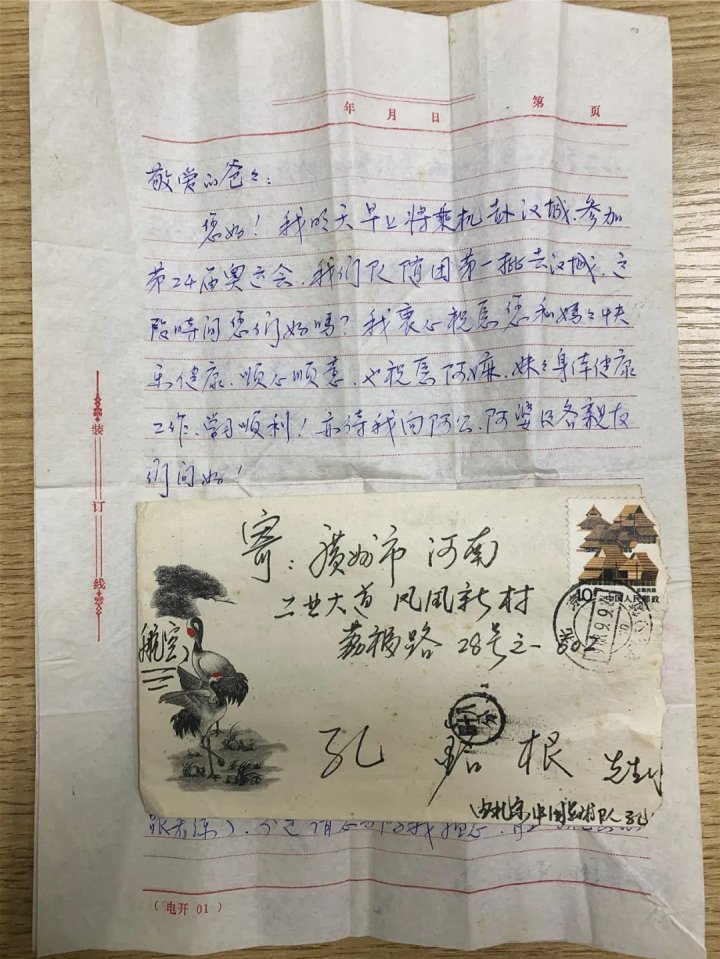 年 月 日 第 页
敬爱的爸々：
您好！我明天早上将乘机赴汉城，参加
第24届奥运会，我们队随团第一批去汉城，这
段时间您们好吗？我衷心祝愿您和妈々快
乐健康，顺心顺意，也祝愿阿嫲，妹々身体健康
工作、学习顺利！亦待我向阿公，阿婆及各亲友
们问好！
装订线
寄：广州市 河南
工业大道 凤凰新村
荔福路 28号之一 602
航空
10分 中国人民邮政
孔 铭 根 先生
由北京中国击剑队 孔
（电开 01）